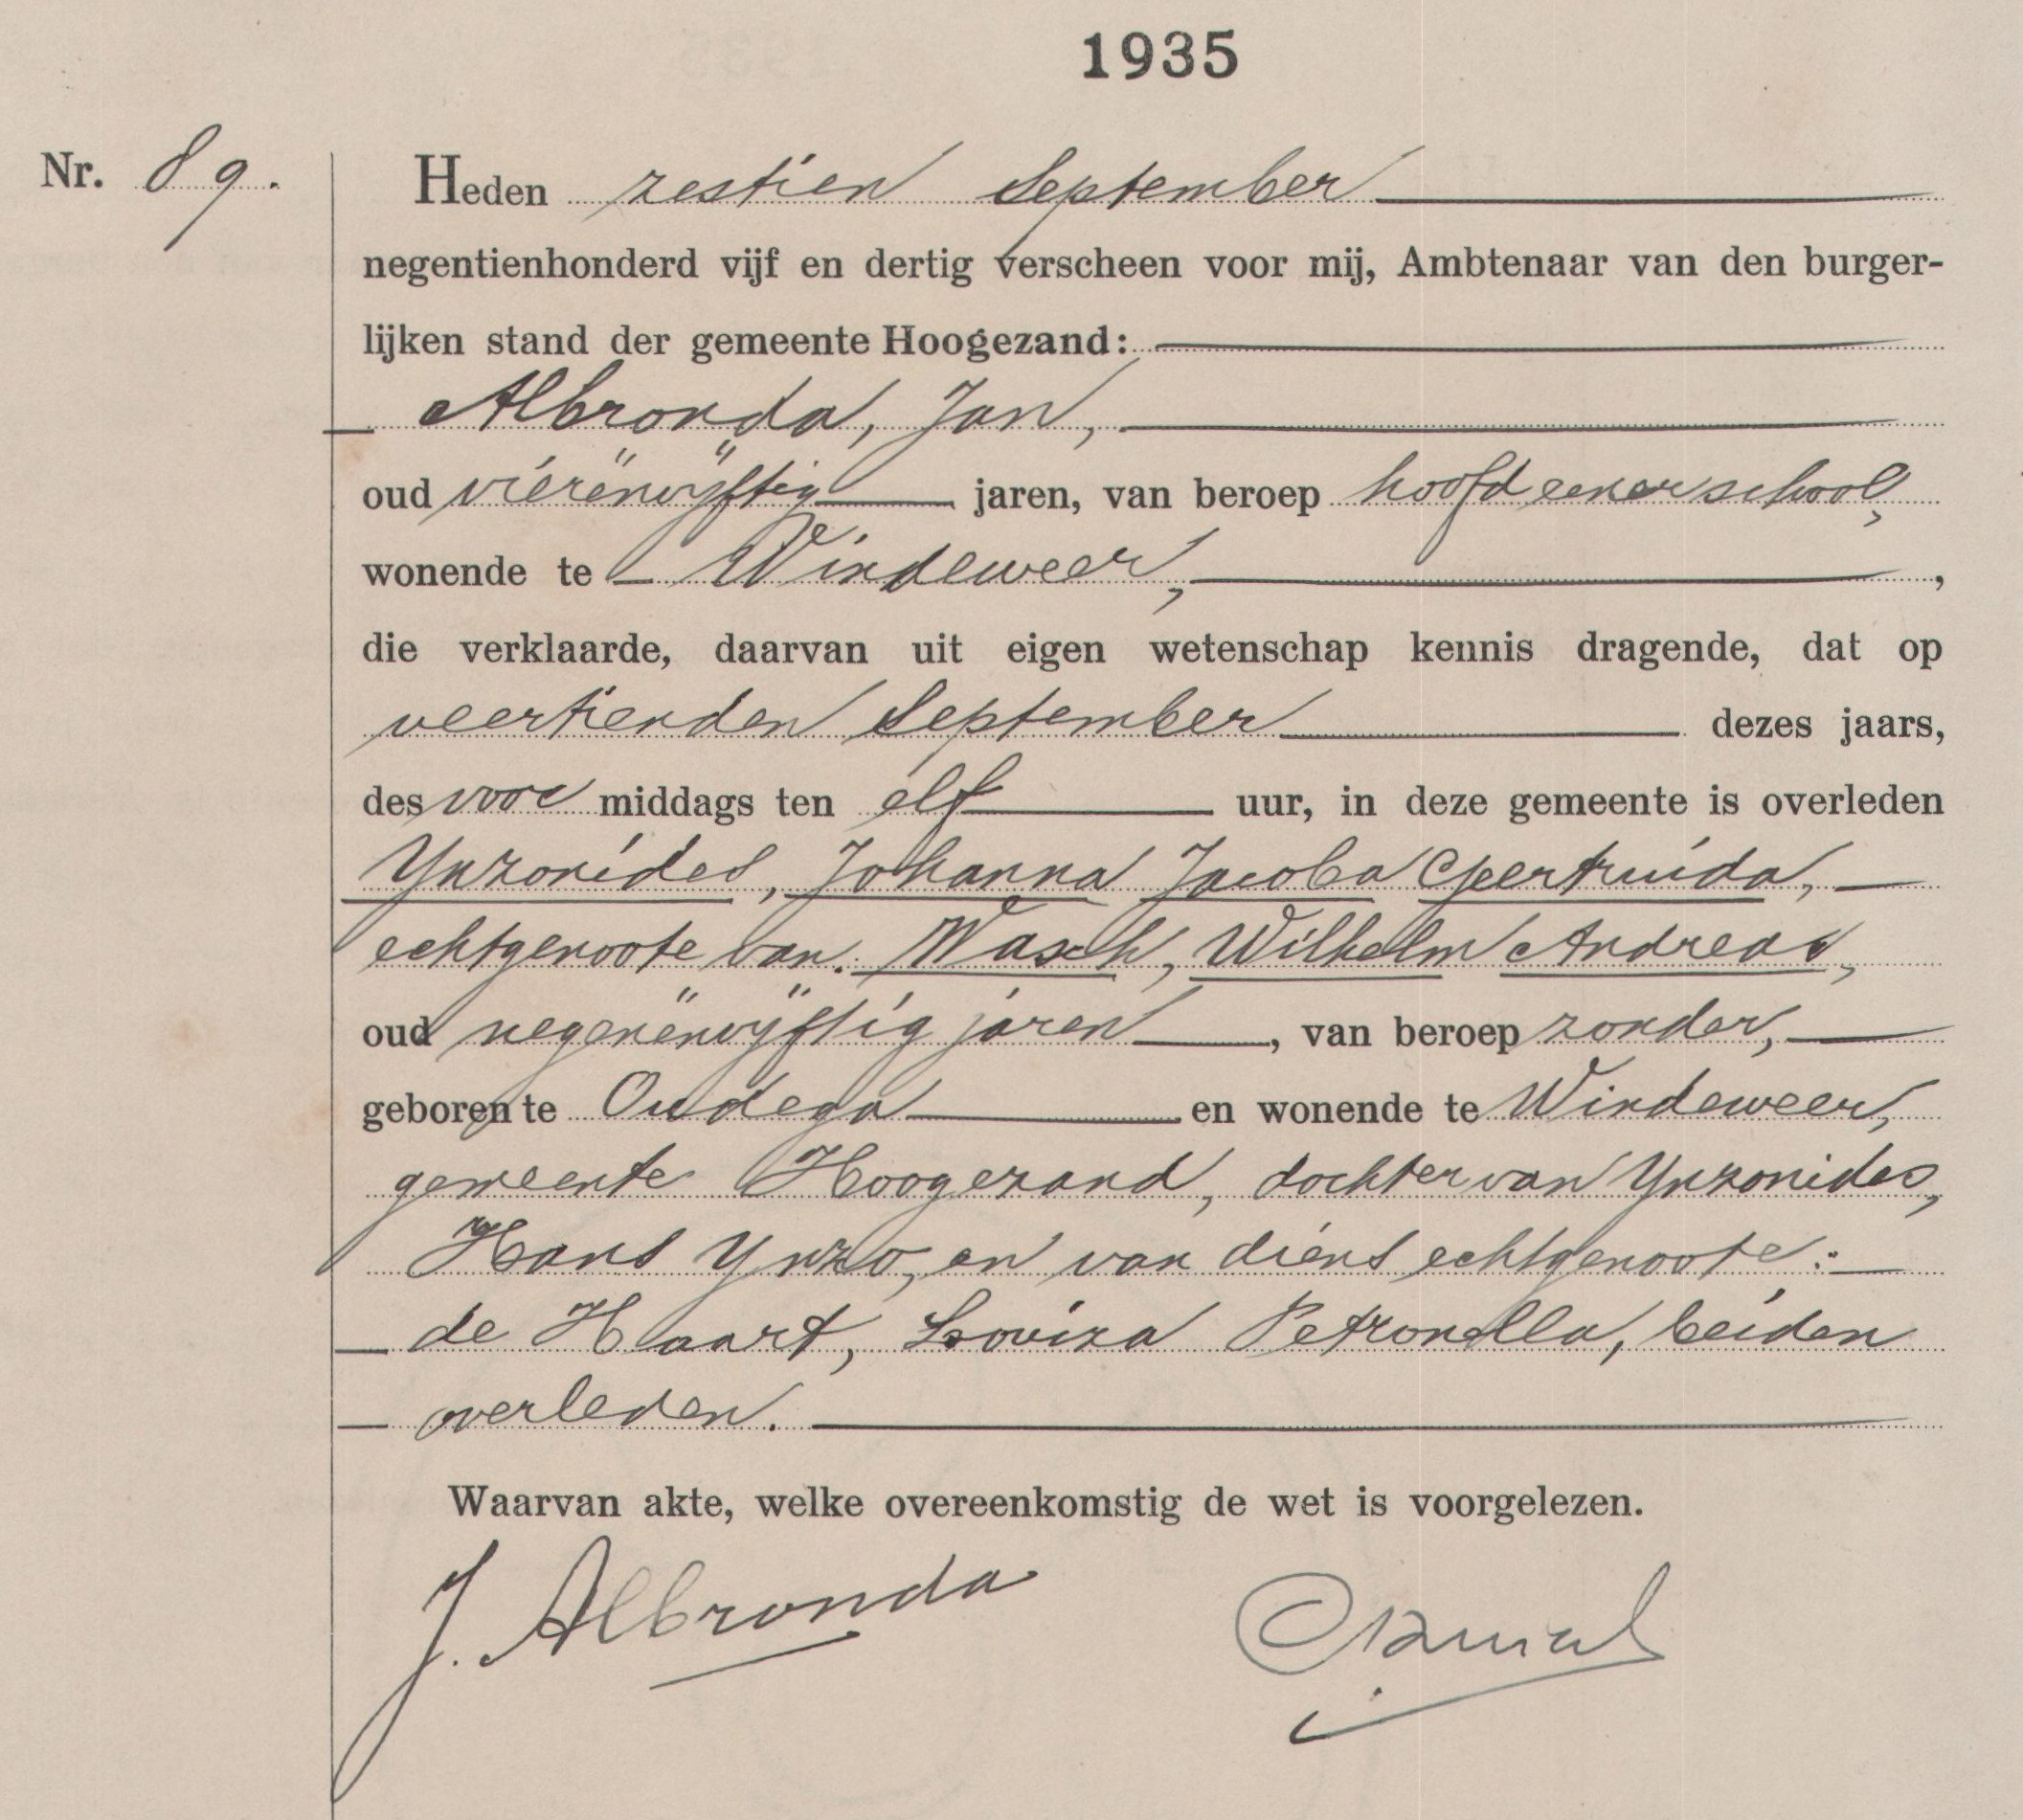 1935
Nr. 89.
Heden zestien September
negentienhonderd vijf en dertig verscheen voor mij, Ambtenaar van den burger-
lijken stand der gemeente Hoogezand:
Albronda, Jan,
oud vierënvijftig jaren, van beroep hoofd eener school,
wonende te Windeweer,
die verklaarde, daarvan uit eigen wetenschap kennis dragende, dat op
veertienden September dezes jaars,
des voor middags ten elf uur, in deze gemeente is overleden
Ynzonides, Johanna Jacoba Geertruida,
echtgenoote van: Wasch, Wilhelm Andreas,
oud negenënvijftig jaren, van beroep zonder,
geboren te Oudega en wonende te Windeweer,
gemeente Hoogezand, dochter van Ynzonides,
Hans Ynzo, en van diens echtgenoote:
de Haart, Loviza Petronella, beiden
overleden.
Waarvan akte, welke overeenkomstig de wet is voorgelezen.
J. Albronda